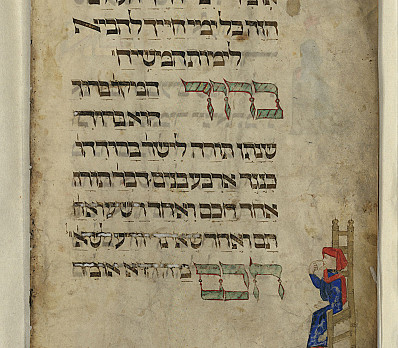 העולם
הזה כל ימי חייך להביא
לימות המשיח
ברוך המקום ברוך
הוא ברוך
שנתן תורה לישר ברוך הו
כנגד ארבע בנים דבר תורה
אחד חכם ואחד רשע ואח
תם ואחד שאינו יודע לשא
חכם מהו הוא אומר